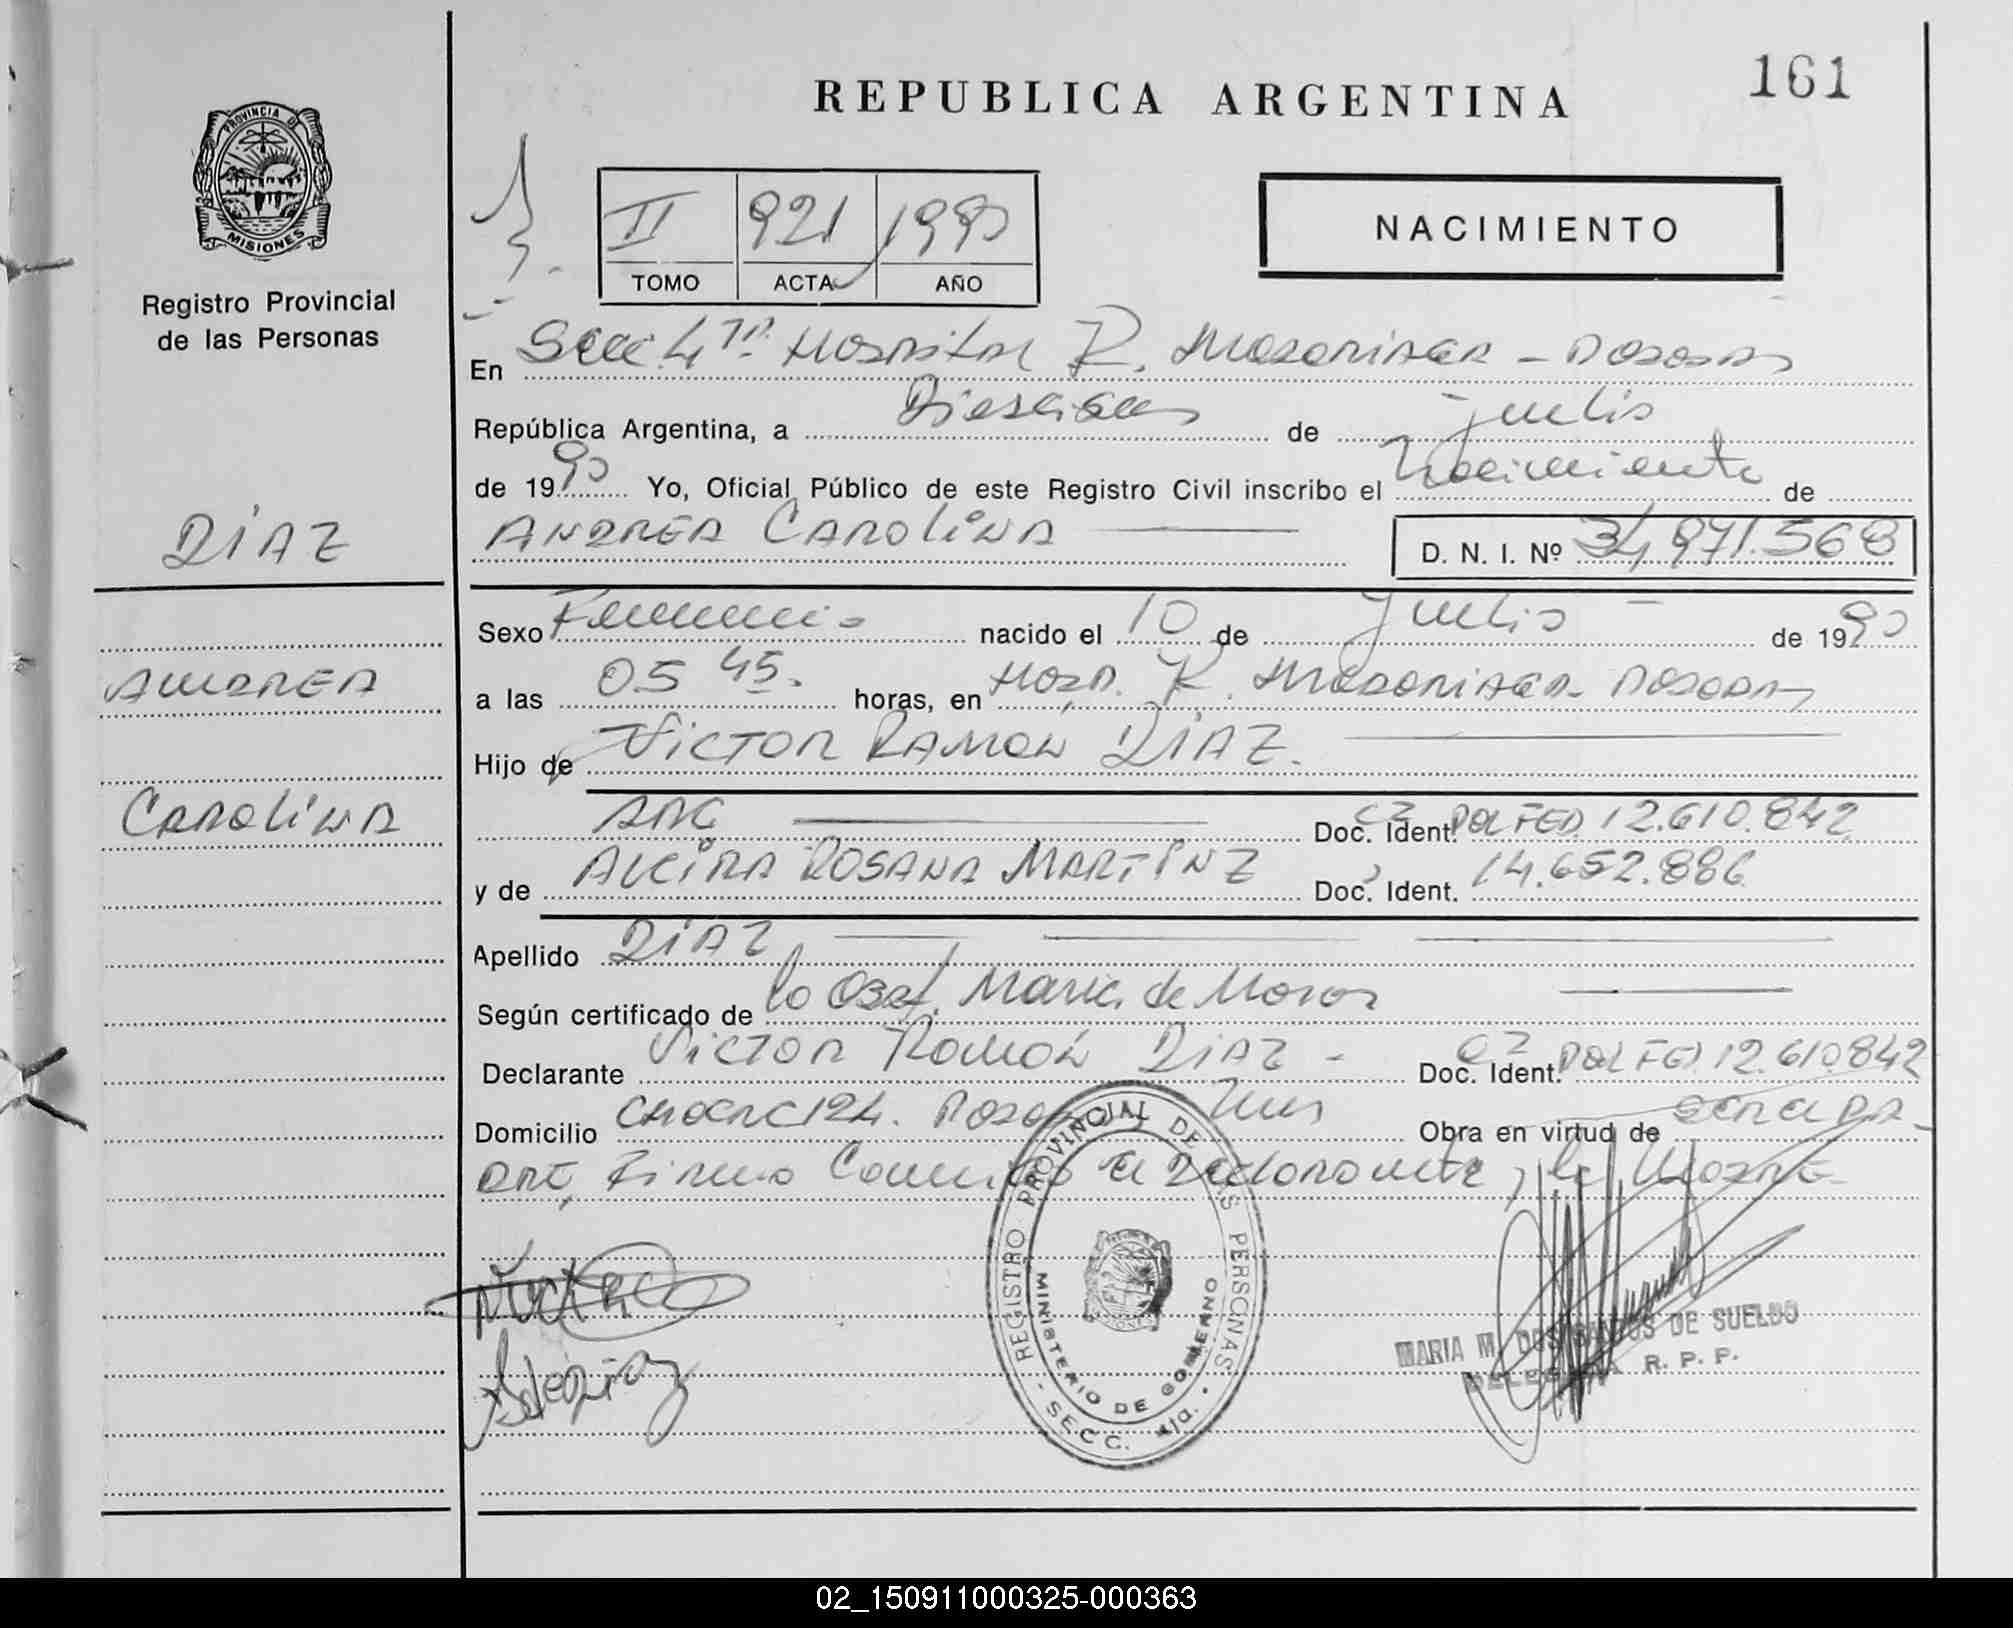 161
REPUBLICA ARGENTINA
PROVINCIA DE
MISIONES
Registro Provincial
de las Personas
II 921 1990
TOMO ACTA AÑO
NACIMIENTO
En Secc. 4ta. Hospital R. Madariaga - Posadas
República Argentina, a Dieciseis de julio
de 1990 Yo, Oficial Público de este Registro Civil inscribo el Nacimiento de
ANDREA CAROLINA D. N. I. Nº 34.971.568
DIAZ
ANDREA
CAROLINA
Sexo Femenino nacido el 10 de Julio de 1990
a las 05 45. horas, en Hosp. R. Madariaga - Posadas
Hijo de VICTOR RAMON DIAZ.
ARG Doc. Ident. CI POL FED 12.610.842
y de ALCIRA ROSANA MARTINZ Doc. Ident. 14.652.886
Apellido DIAZ
Según certificado de la Obst. Maria de
Declarante VICTOR RAMON DIAZ - Doc. Ident. CI POL FED 12.610.842
Domicilio 124. Posadas Mnes Obra en virtud de
Firma Conmigo el Declarante y la Madre
REGISTRO PROVINCIAL DE LAS PERSONAS
MINISTERIO DE GOBIERNO
SECC. 4ta.
MARIA M. DOS SANTOS DE SUELDO
DELEGADA R. P. P.
02_150911000325-000363